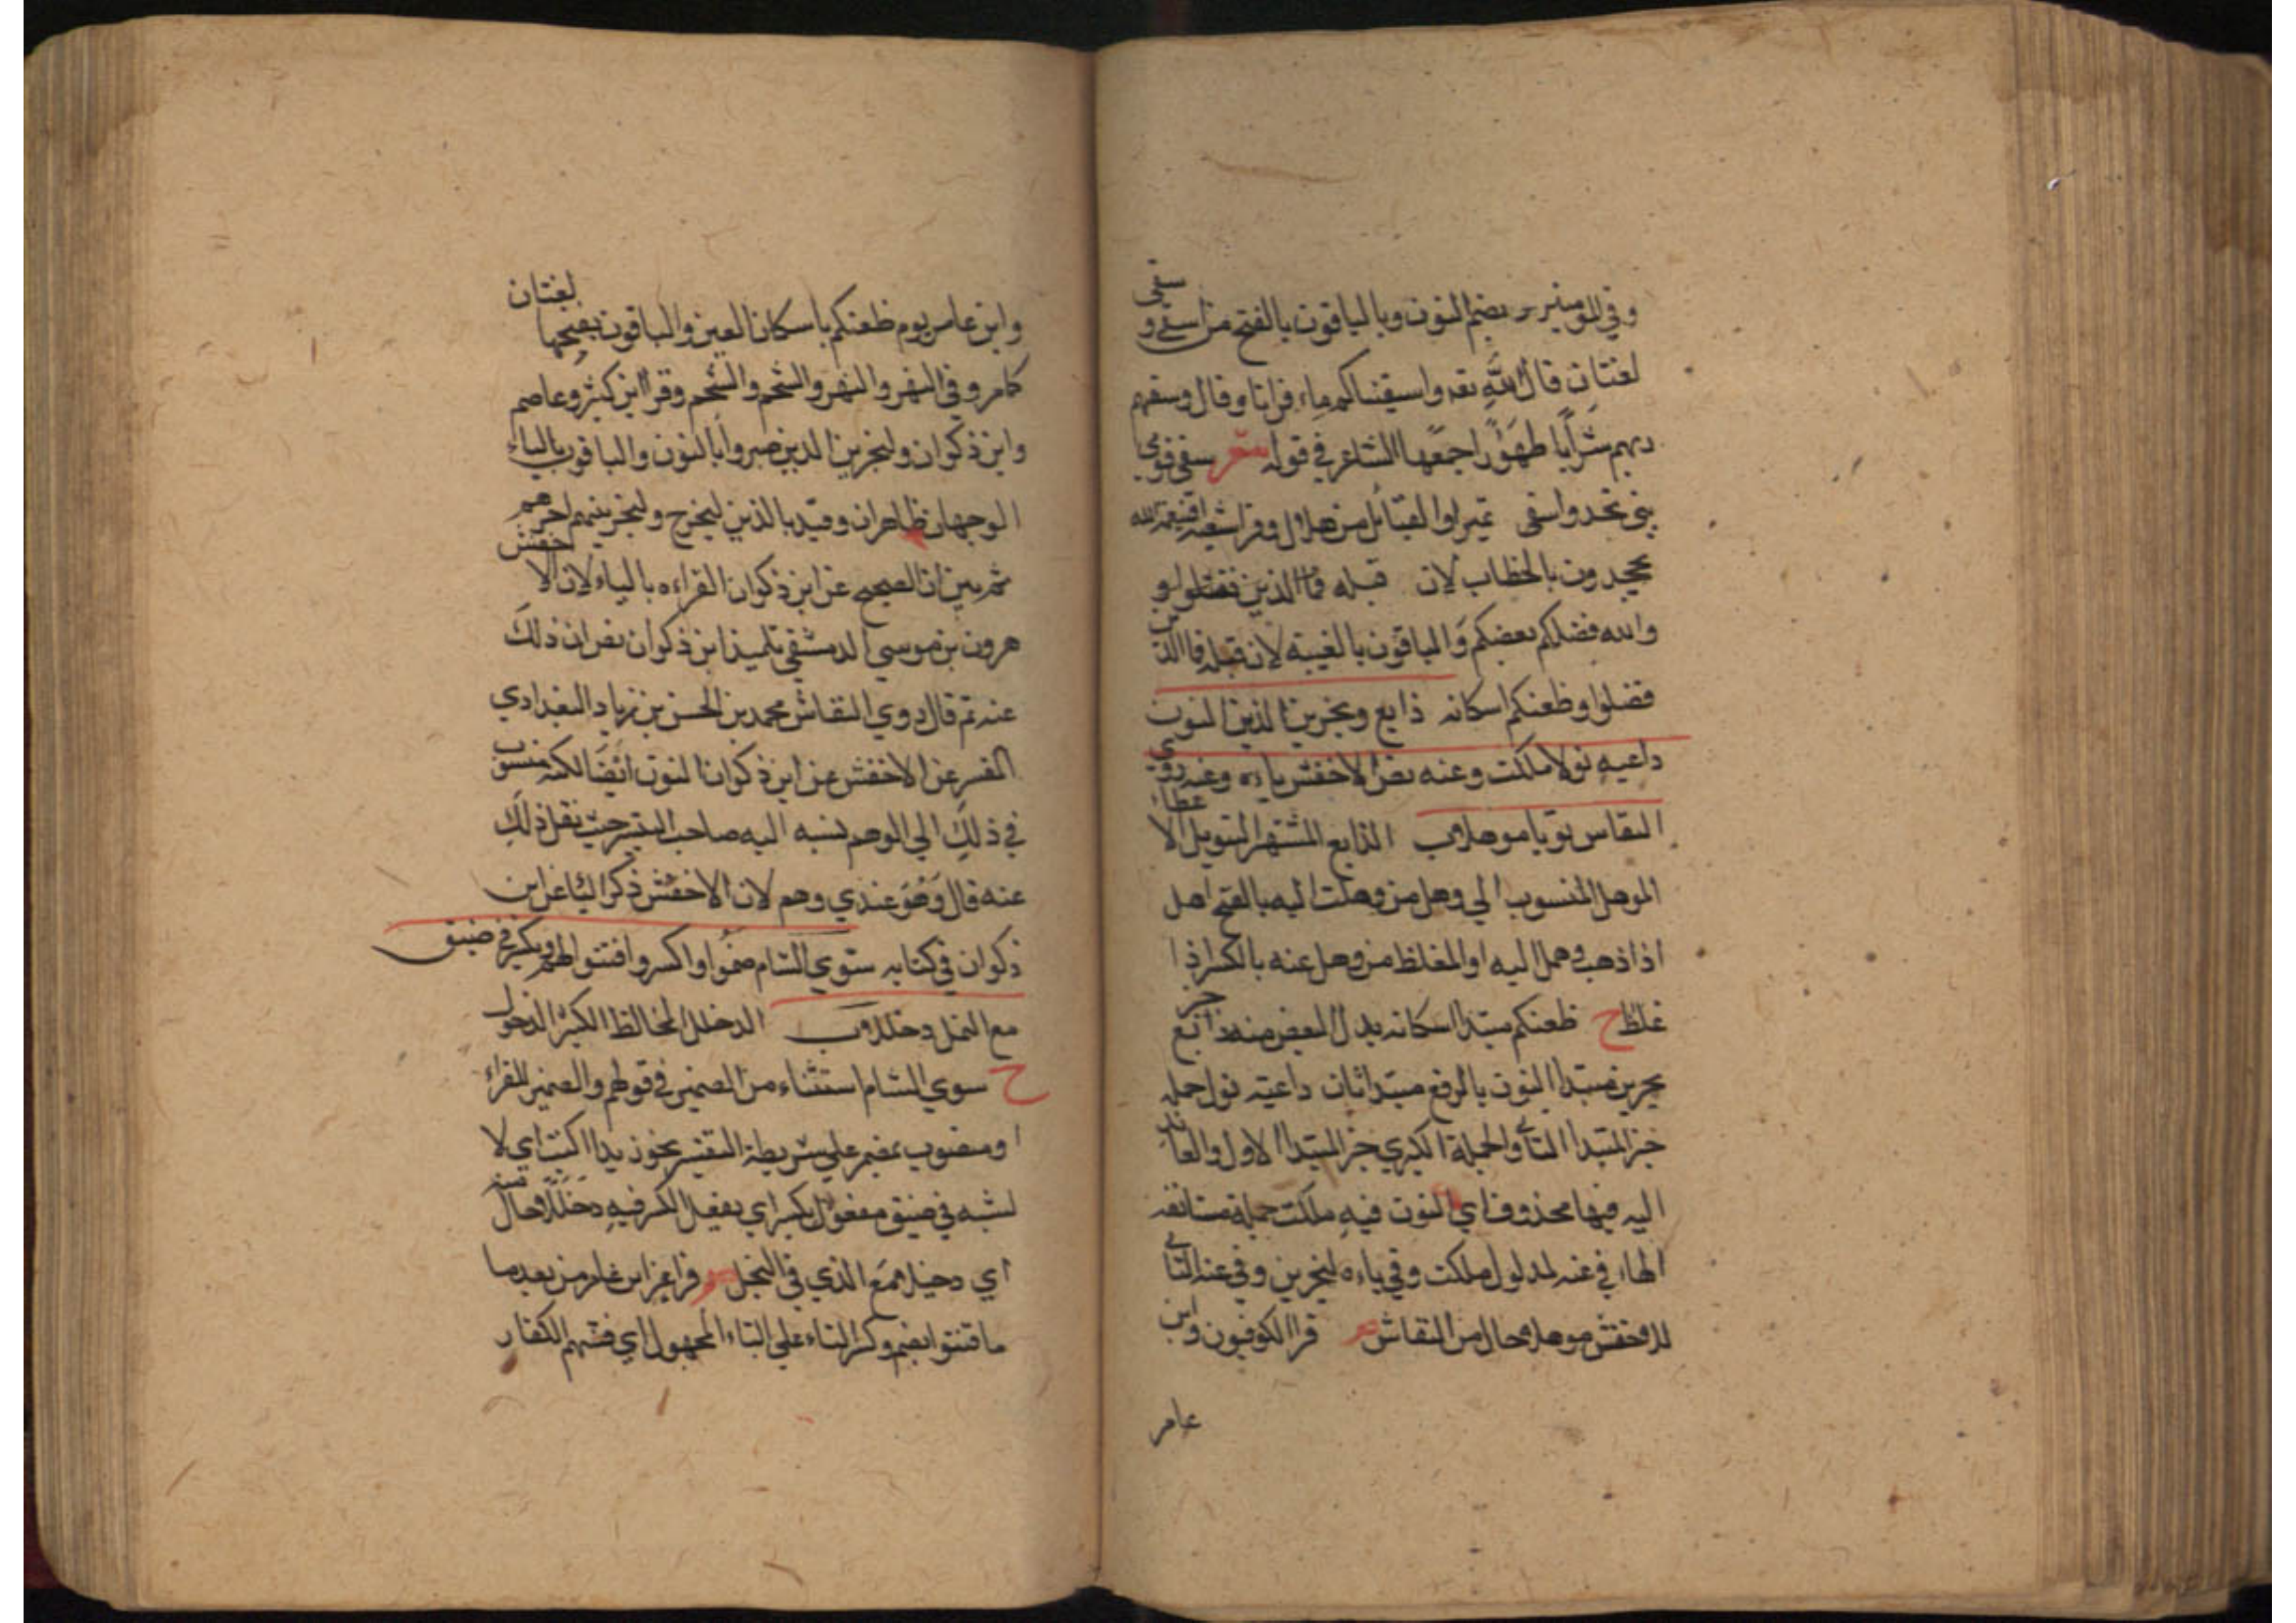 وفي المومنين بضم النون وبالياقون بالفتح من اسقى و سقى
لغتان قال الله تعه واسقيناكم ماء فراتا وقال وسقهم
ربهم شرابا طهورا جمعها الشاعر في قوله شعر سقى قومي
بني نجد واسقى نميرا والقبائل من هلال وقرا شعبه افبنعمة الله
يجحدون بالخطاب لان قبله فما الذين فضلوا و
والله فضلكم بعضكم والباقون بالغيبة لان قبله فما الذين
فضلوا وظعنكم اسكانه ذايع ويجزين الذين النون
داعيه نولا ملكت وعنه نص الاخفش ياءه وعنه روى
النقاس نويا موهلا ب الذايع المشتهر التنويل الاعطاء
الموهل المنسوب الي وهل من وهلت اليه بالفتح اهل
اذا ذهب وهمل اليه او المغلظ من وهل عنه بالكسر اذا
غلظ ح ظعنكم مبتدا اسكانه بدل البعض منه ذايع خبر
يجزين مبتدا النون بالرفع مبتدا ثان داعيه نول جمله
خبر المبتدا الثاني والجملة الكبري خبر المبتدا الاول والعائد
اليه فيها محذوف اي النون فيه ملكت جملة مستانفه
الهاء في عنه لمدلول ملكت وفي ياءه ليجزين وفي عنه الثاني
للاخفش موهلا حال من النقاش ص قرا الكوفيون وابن
عامر
وابن عامر يوم ظعنكم باسكان العين والباقون بفتحها لغتان
كامر وفي النهر والنهر والشحم والشحم وقرا ابن كثير وعاصم
وابن ذكوان ولنجزين الذين صبروا بالنون والباقون بالياء
الوجهان ظاهران وقيد بالذين ليخرج ولنجزينهم اجرهم
ثم بين ان الصحيح عن ابن ذكوان القراءه بالياء لان الاخفش
هرون بن موسي الدمشقي تلميذ ابن ذكوان نص ان ذلك
عنه ثم قال روي النقاش محمد بن الحسن بن زياد البغدادي
المفسر عن الاخفش عن ابن ذكوان النون ايضا لكنه منسوب
في ذلك الي الوهم نسبه اليه صاحب التيسير حيث نقل ذلك
عنه قال وهو عندي وهم لان الاخفش ذكر الياء عن ابن
ذكوان في كتابه سوي الشام ضموا واكسروا فتنوا لهم ويكسر في ضيق
مع النمل دخللا ب الدخلل المخالط الكثير الدخول
ح سوي الشام استثناء من الضمير في قولهم والضمير للقراء
او منصوب بمضمر علي شريطة التفسير نحو زيدا اكنت اي لا
لشبه في ضيق مفعول يكسر اي يفعل الكسر فيه دخللا حال منه
اي دخيلا مع الذي في النحل ص قرا عن ابن عامر من بعد ما
ما فتنوا بضم وكسر التاء علي البناء المجهول اي فتنهم الكفار